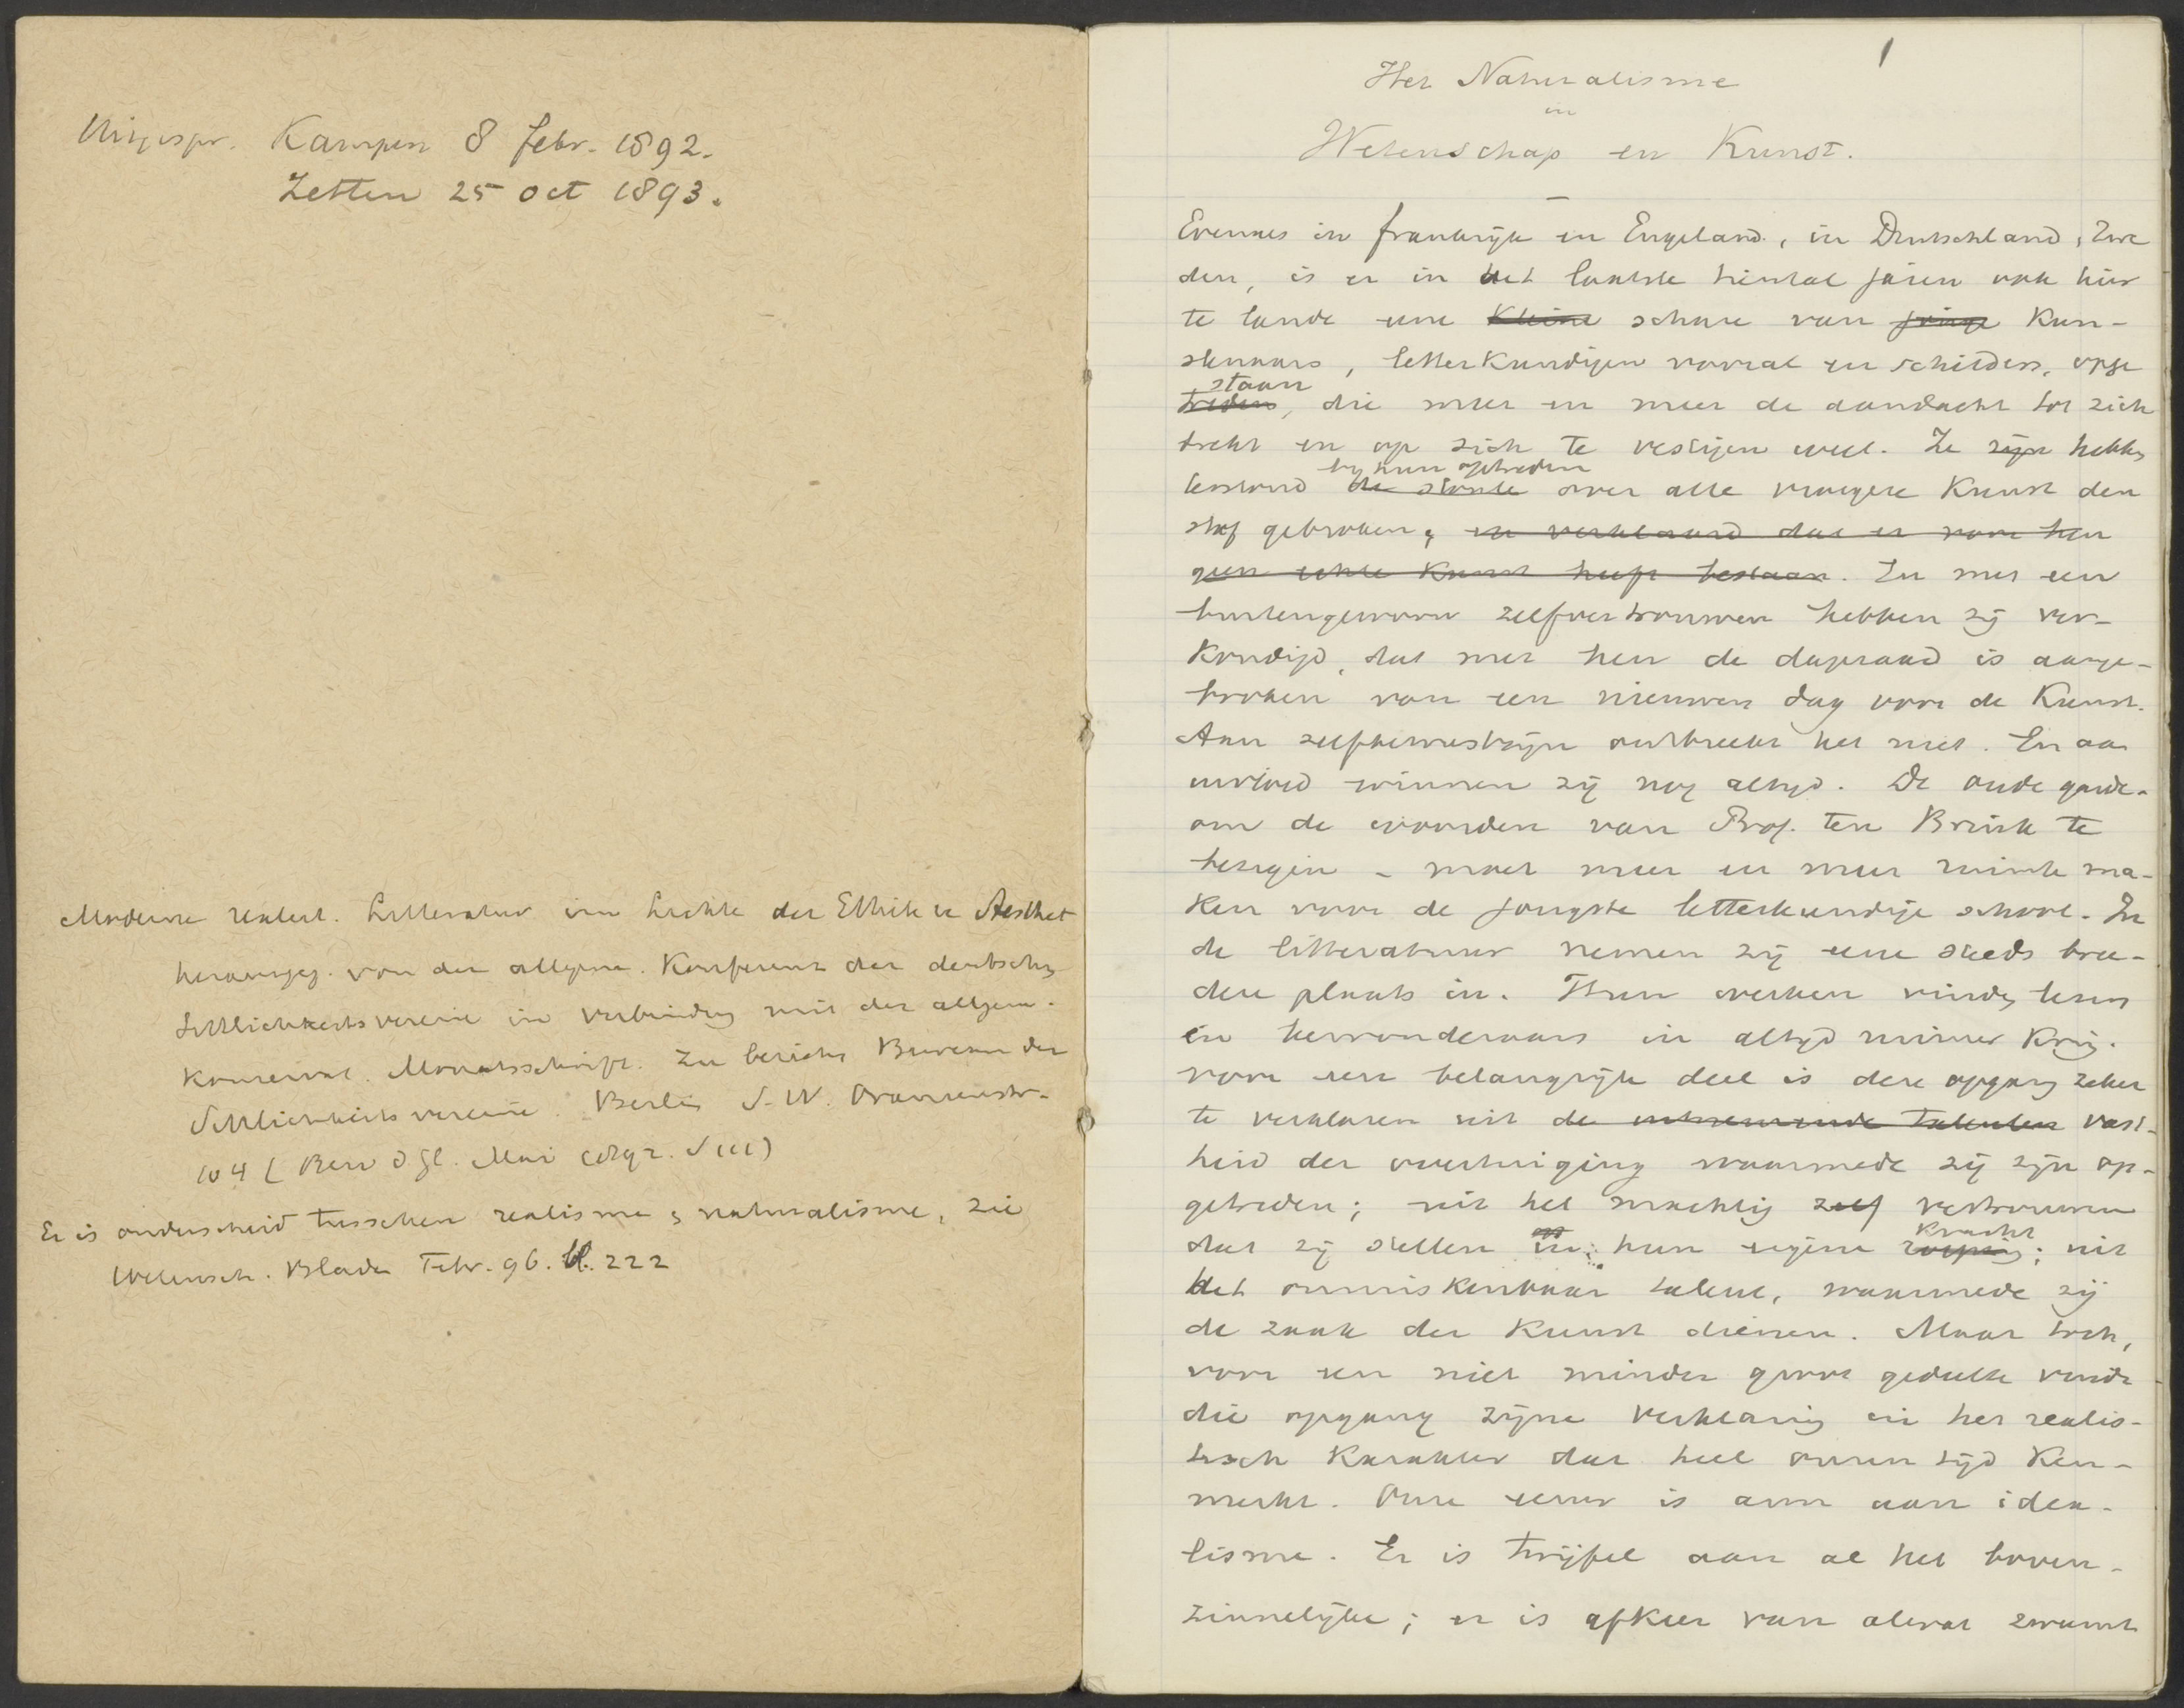 Uitgespr. Kampen 8 febr. 1892.
Zetten 25 oct 1893.
Moderne Litteratur im Lichte der Ethik u Aesthet
herausgeg. von der allgem. Konferenz der deutschen
Sittlichkeitsvereine in Verbindung mit der allgem.
Konservat. Monatsschrift. Zu bericht Bureau der
Sittlichkeitsvereine. Berlin S.W. Oranienstr.
104
Er is onderscheid tusschen realisme & naturalisme, zie
Wetensch. Bladen Febr. 96. bl. 222
1
Het Naturalisme
in
Wetenschap en Kunst.
Evenals in frankrijk en Engeland, in Deutschland, Zwe
den, is er in het laatste tiental jaren ook hier
te lande eene kleine schare van jonge Kun-
stenaars, letterkundigen vooral en schilders, opge
staan
treden, die meer en meer de aandacht tot zich
trekt en op zich te vestigen weet. Ze zijn hebben
by hun optreden
terstond over alle vroegere Kunst den
staf gebroken; en verklaard dat er voor hen
geen echte Kunst heeft bestaan. En met een
buitengewoon zelfvertrouwen hebben zij ver-
kondigd, dat met hen de dageraad is aange-
broken van een nieuwen dag voor de Kunst.
Aan zelfbewustzijn ontbreekt het niet. En aan
invloed winnen zij nog altijd. De oude garde-
om de woorden van Prof. ten Brink te
bezigen - moet meer en meer ruimte ma-
ken voor de jongste letterkundige school. In
de litteratuur nemen zij eene steeds bree-
dere plaats in. Hun werken vinden lezers
en bewonderaars in altijd ruimer Kring.
voor een belangrijk deel is deze opgang zeker
te verklaren uit de uitnemende talenten vast-
heid der overtuiging waarmede zij zijn op-
getreden; uit het machtig zelf vertrouwen
kracht
dat zij stellen in hun eigene roeping; uit
het onmiskenbaar talent, waarmede zij
de zaak der Kunst dienen. Maar toch,
voor een niet minder groot gedeelte vindt
die opgang zijne verklaring in het realis-
tisch Karakter dat heel onzen tijd Ken-
merkt. Onze eeuw is arm aan idea-
lisme. Er is twijfel aan al het boven-
zinnelijke; er is afkeer van alwat zweemt